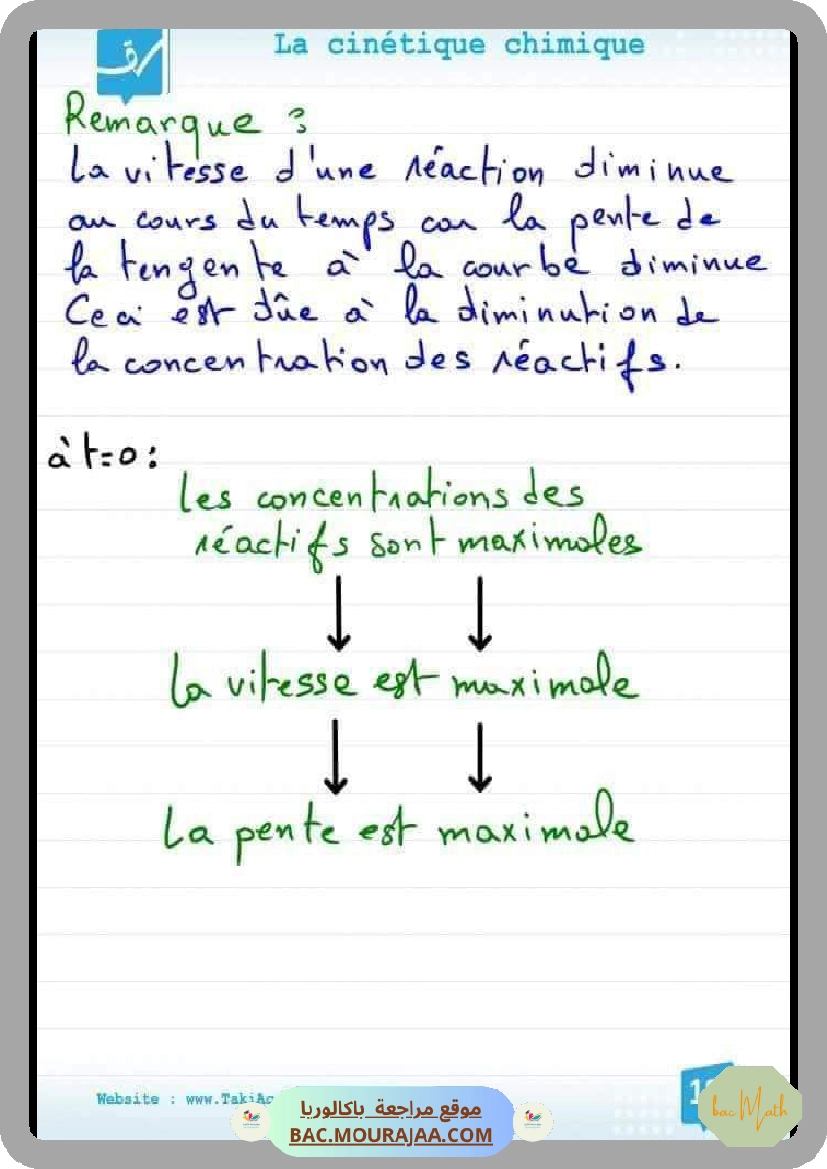 La cinétique chimique
Remarque :
La vitesse d'une réaction diminue
au cours du temps car la pente de
la tengente à la courbe diminue
Ceci est dûe à la diminution de
la concentration des réactifs.
à t=0 :
les concentrations des
réactifs sont maximales
la vitesse est maximale
La pente est maximale
Website : www.TakiAc
موقع مراجعة باكالوريا
BAC.MOURAJAA.COM
bac Math